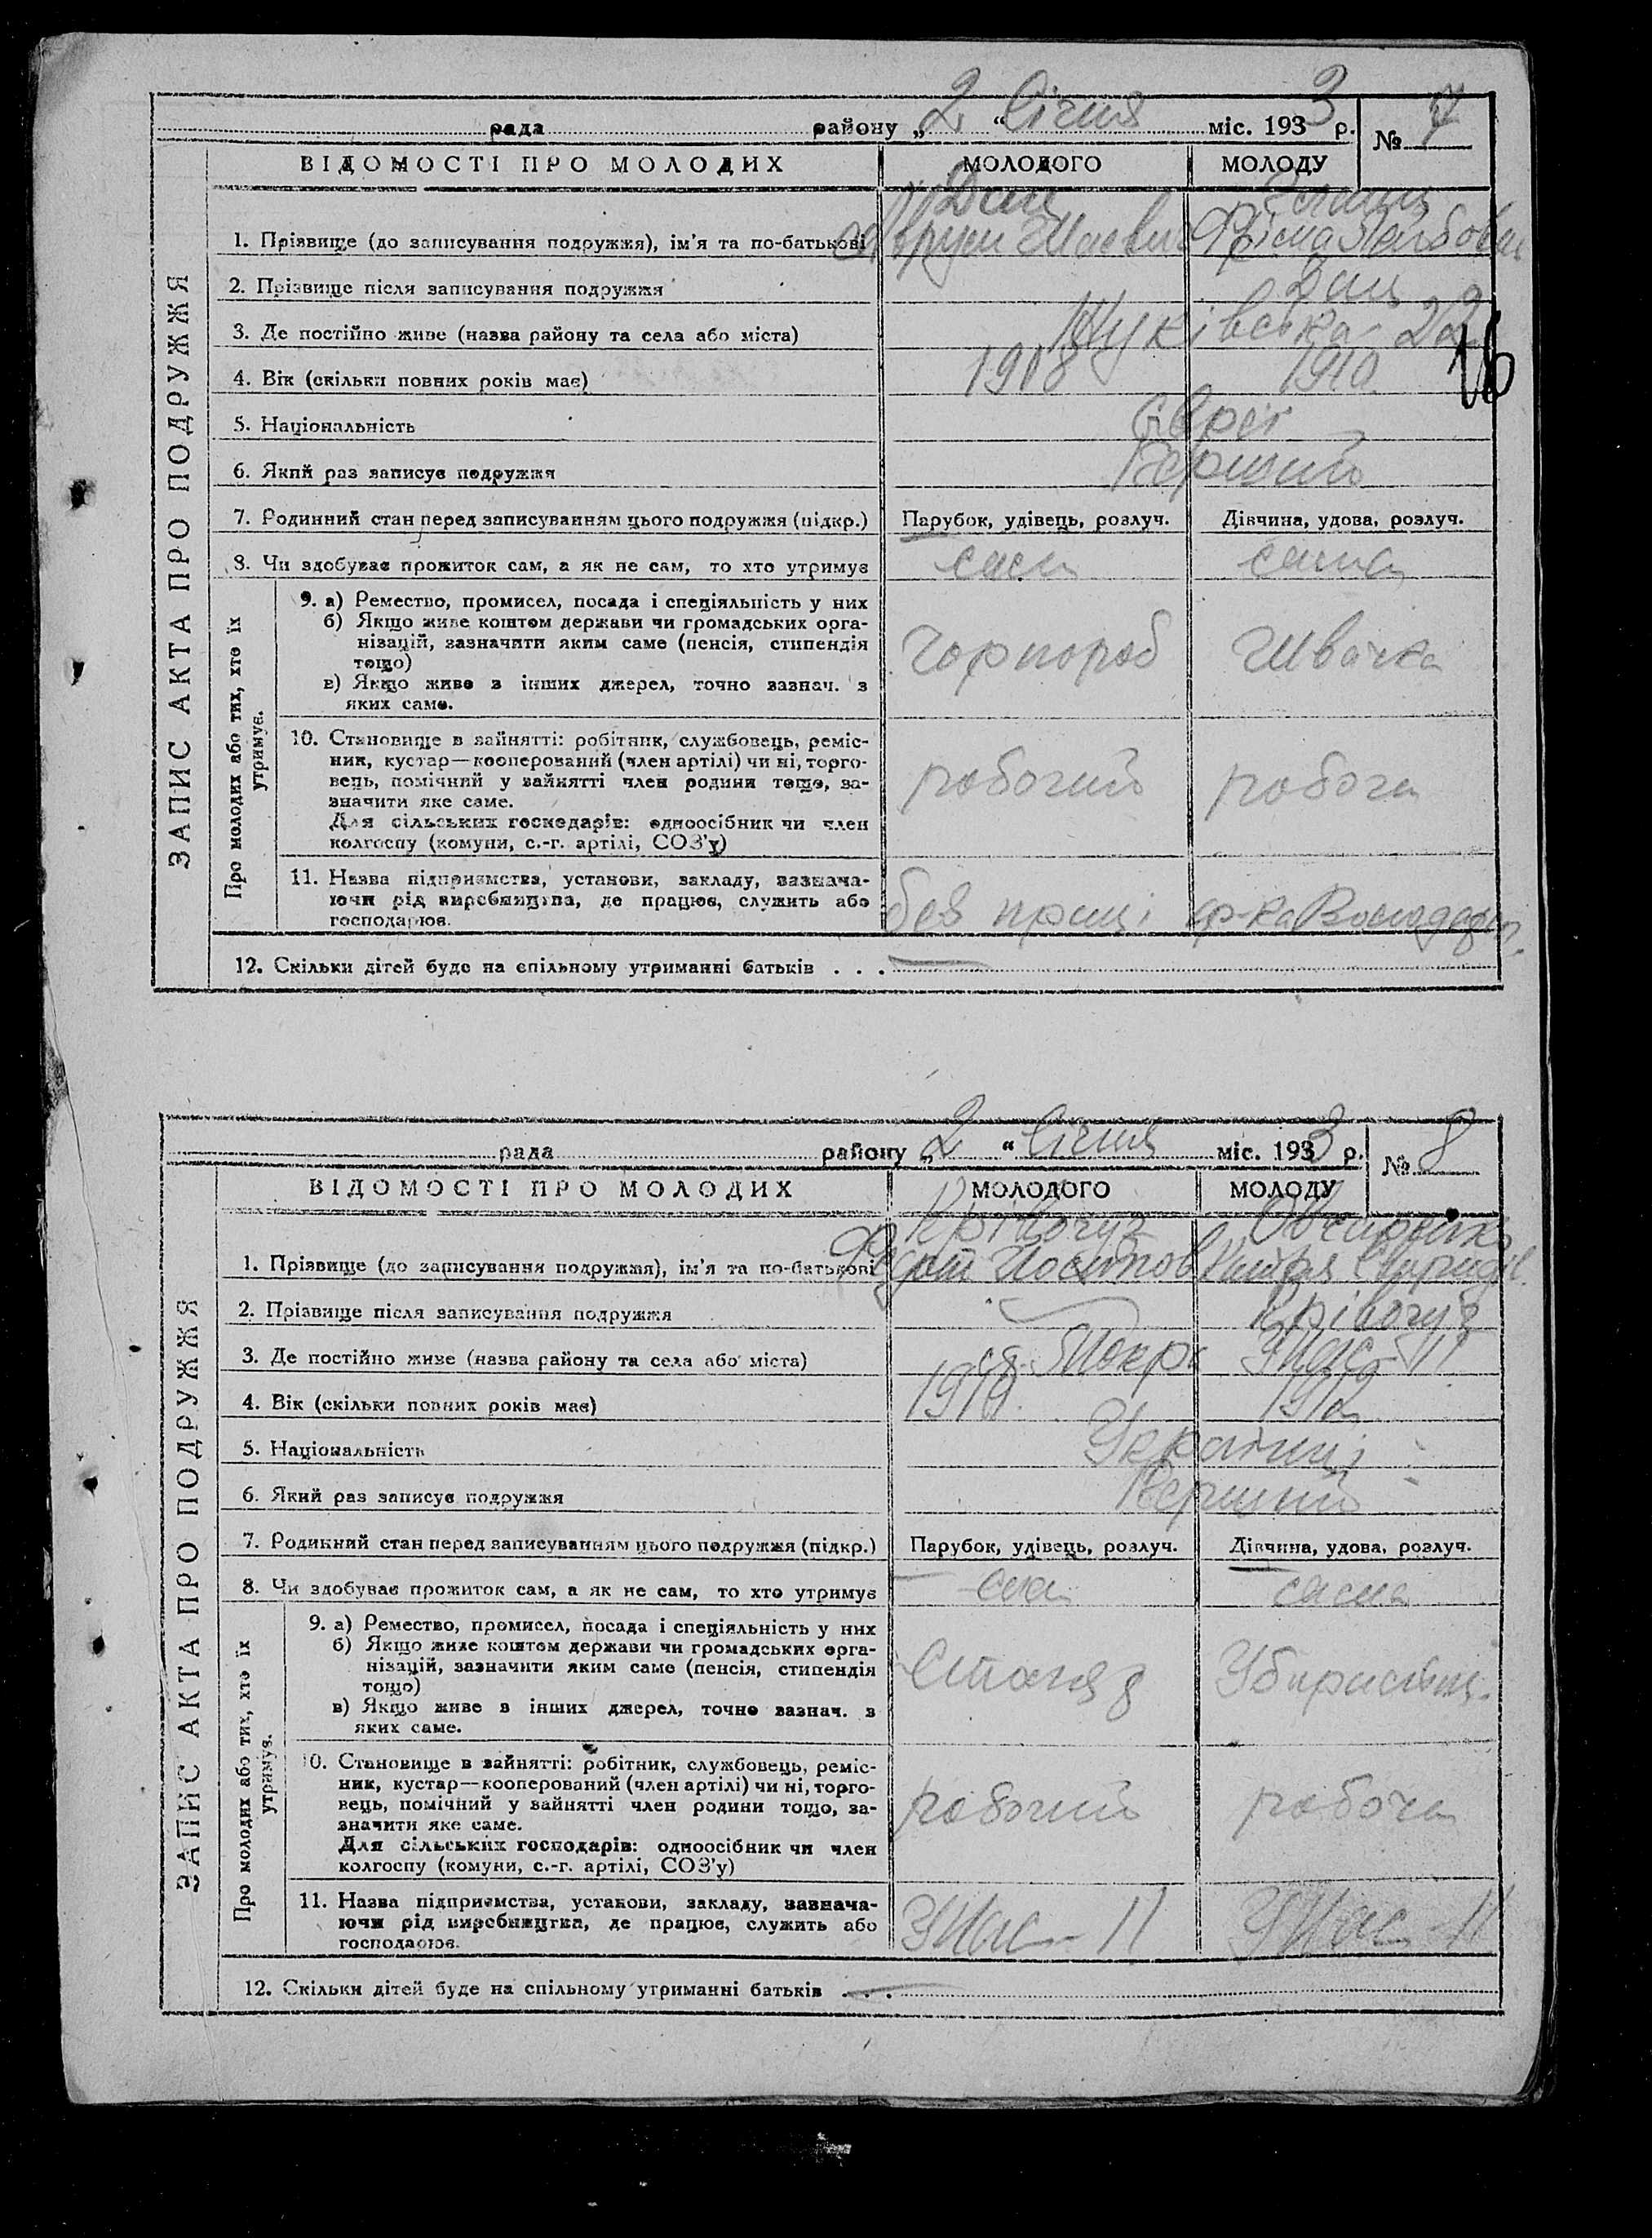 рада району „2“ Січня міс. 1933 р. № 7
ВІДОМОСТІ ПРО МОЛОДИХ МОЛОДОГО МОЛОДУ
ЗАПИС АКТА ПРО ПОДРУЖЖЯ
1. Прізвище (до записування подружжя), ім'я та по-батькові
2. Прізвище після записування подружжя
3. Де постійно живе (назва району та села або міста) Жуківська 22
16
4. Вік (скільки повних років має) 1908 1910
5. Національність Євреї
6. Який раз записує подружжя Перший
7. Родинний стан перед записуванням цього подружжя (підкр.) Парубок, удівець, розлуч. Дівчина, удова, розлуч.
8. Чи здобуває прожиток сам, а як не сам, то хто утримує сам сама
Про молодих або тих, хто їх утримує.
9. а) Ремество, промисел, посада і спеціяльність у них
б) Якщо живе коштом держави чи громадських орга-
нізацій, зазначити яким саме (пенсія, стипендія
тощо)
в) Якщо живе з інших джерел, точно зазнач. з
яких саме.
Чорнороб Швачка
10. Становище в зайнятті: робітник, службовець, реміс-
ник, кустар—кооперований (член артілі) чи ні, торго-
вець, помічний у зайнятті член родини тощо, за-
значити яке саме.
Для сільських господарів: одноосібник чи член
колгоспу (комуни, с.-г. артілі, СОЗ'у)
робочий робоча
11. Назва підприємства, установи, закладу, зазнача-
ючи рід виробництва, де працює, служить або
господарює.
без праці ф-ка
12. Скільки дітей буде на спільному утриманні батьків . . .
рада району „2“ Січня міс. 1933 р. № 8
ВІДОМОСТІ ПРО МОЛОДИХ МОЛОДОГО МОЛОДУ
ЗАПИС АКТА ПРО ПОДРУЖЖЯ
Крівочуз
1. Прізвище (до записування подружжя), ім'я та по-батькові
2. Прізвище після записування подружжя Крівочуз
3. Де постійно живе (назва району та села або міста)
4. Вік (скільки повних років має) 1910 1912
5. Національність Українці
6. Який раз записує подружжя Перший
7. Родинний стан перед записуванням цього подружжя (підкр.) Парубок, удівець, розлуч. Дівчина, удова, розлуч.
8. Чи здобуває прожиток сам, а як не сам, то хто утримує сам сама
Про молодих або тих, хто їх утримує.
9. а) Ремество, промисел, посада і спеціяльність у них
б) Якщо живе коштом держави чи громадських орга-
нізацій, зазначити яким саме (пенсія, стипендія
тощо)
в) Якщо живе з інших джерел, точно зазнач. з
яких саме.
10. Становище в зайнятті: робітник, службовець, реміс-
ник, кустар—кооперований (член артілі) чи ні, торго-
вець, помічний у зайнятті член родини тощо, за-
значити яке саме.
Для сільських господарів: одноосібник чи член
колгоспу (комуни, с.-г. артілі, СОЗ'у)
робочий робоча
11. Назва підприємства, установи, закладу, зазнача-
ючи рід виробництва, де працює, служить або
господарює.
12. Скільки дітей буде на спільному утриманні батьків . .